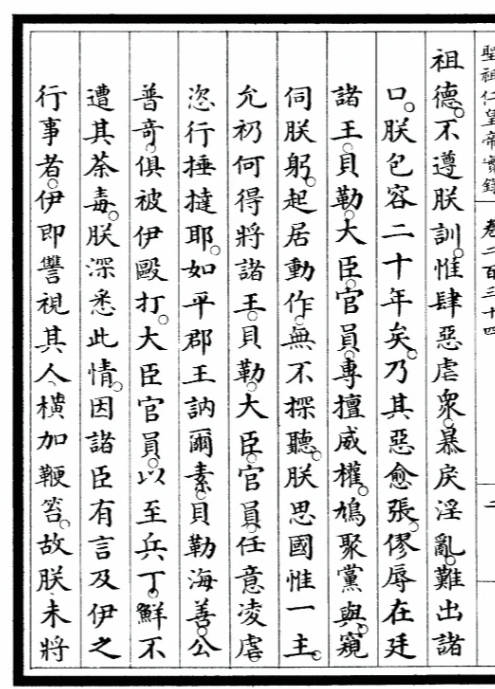 聖祖仁皇帝實錄 卷二百三十四 二
祖德。不遵朕訓。惟肆惡虐衆。暴戾淫亂。難出諸
口。朕包容二十年矣。乃其惡愈張。僇辱在廷
諸王。貝勒。大臣。官員。專擅威權。鳩聚黨與。窺
伺朕躬。起居動作。無不探聽。朕思國惟一主。
允礽何得將諸王。貝勒。大臣。官員。任意凌虐
恣行捶撻耶。如平郡王訥爾素。貝勒海善。公
普奇。俱被伊毆打。大臣官員。以至兵丁。鮮不
遭其荼毒。朕深悉此情。因諸臣有言及伊之
行事者。伊即讐視其人、橫加鞭笞。故朕未將